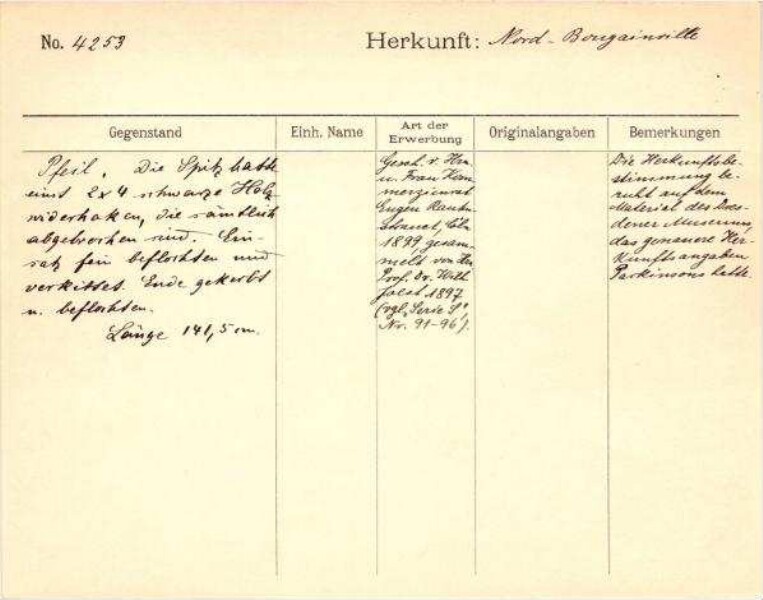 No. 4253
Herkunft: Nord-Bougainville
Gegenstand
Einh. Name
Art der
Erwerbung
Originalangaben
Bemerkungen
Pfeil. Die Spitz hatte
einst 2x4 schwarze Holz
widerhaken, die sämtlich
abgebrochen sind. Ein-
satz fein beflochten und
verkittet. Ende gekerbt
u. beflochten.
Länge 141,5 cm.
Gesch. v. Hrn.
u. Frau Kom
merzienrat
Eugen Rauten
strauch, Cöln
1899, gesam-
melt von Hrn
Prof. Dr. Wilh
Joest 1897
(vgl. "Serie S",
Nr. 91-96).
Die Herkunftsbe-
stimmung be-
ruht auf dem
Material des Dres-
dener Museums,
das genauere Her-
kunftsangaben
Parkinsons hatte.